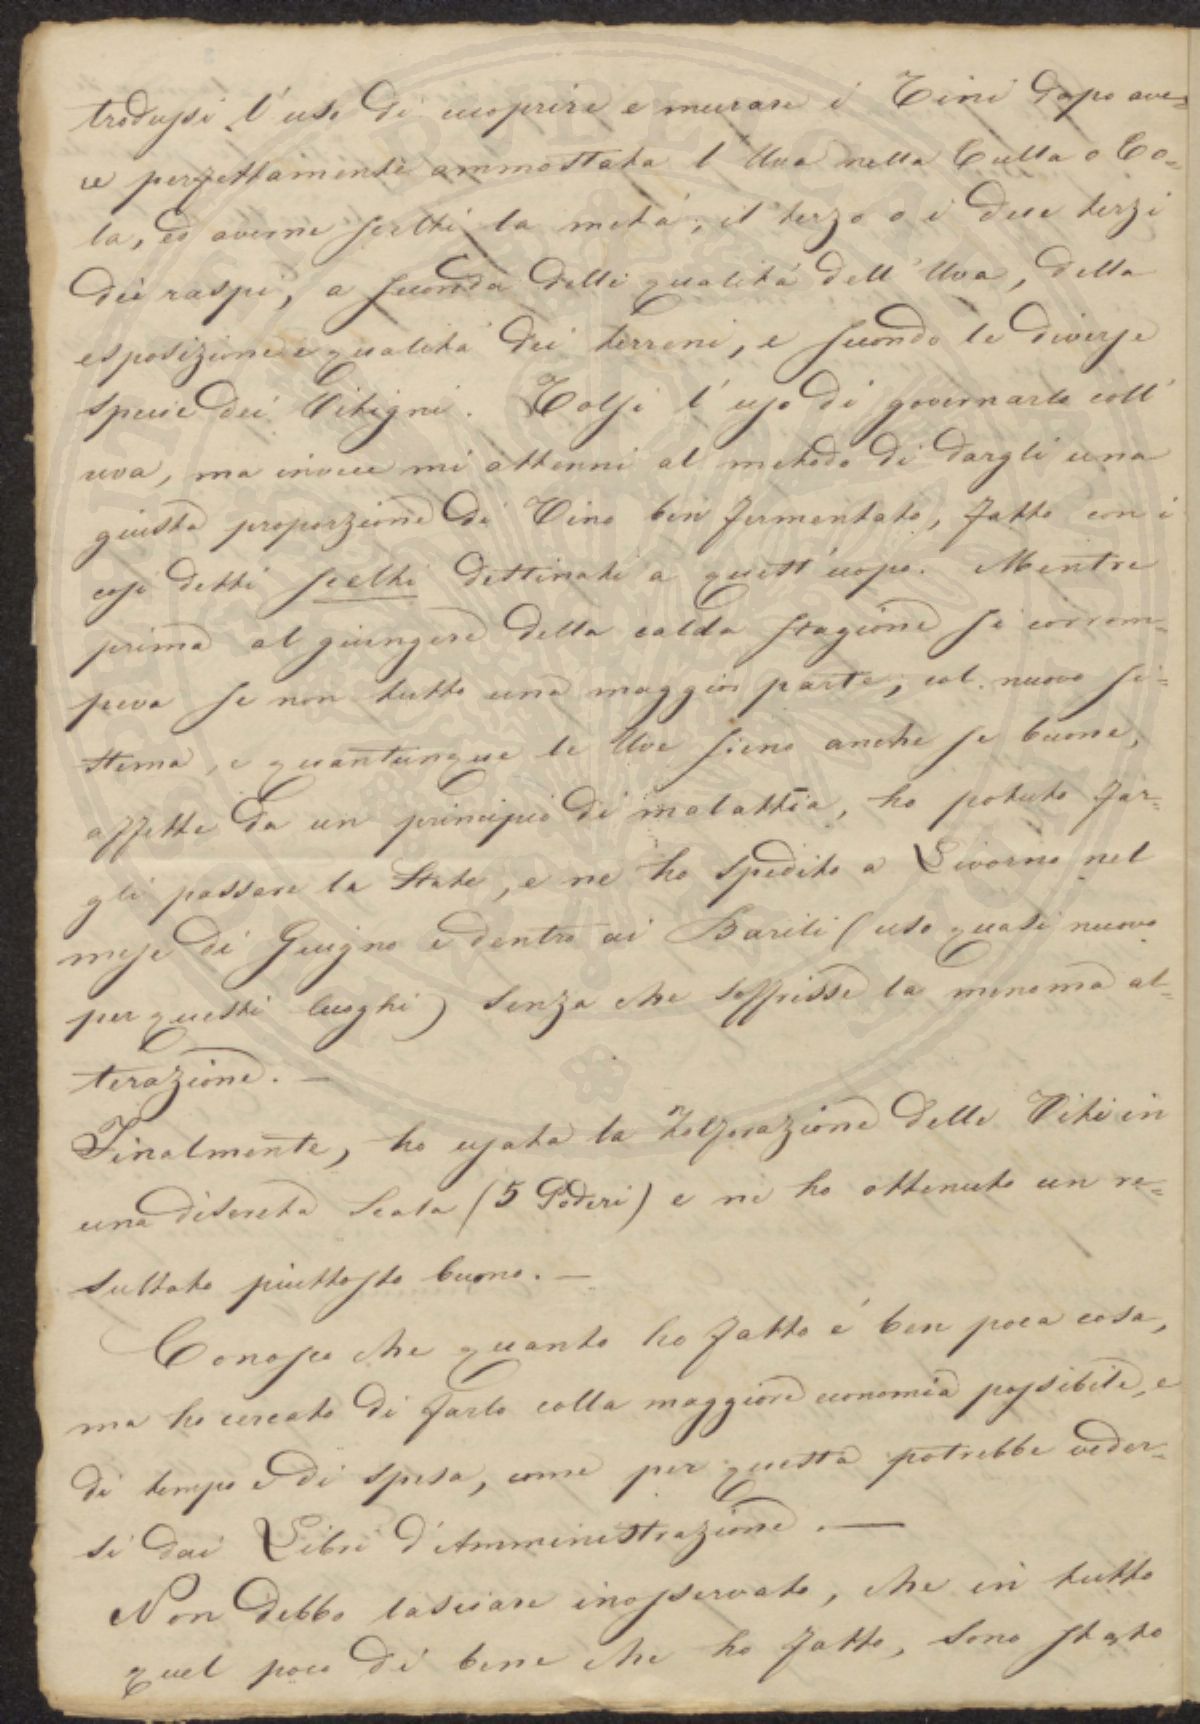 trodussi l'uso di cuoprire e murare i Tini dopo ave=
re perfettamente ammostata l'Uva nella Culla o Co=
la, ed averne scelti la metà, il terzo o i due terzi
dei raspi, a seconda delle qualità dell'Uva, della
esposizione e qualità dei terreni, e secondo le diverse
specie dei Vitigni. Tolsi l'uso di governarlo coll'
uva, ma invece mi attenni al metodo di dargli una
giusta proporzione di Vino ben fermentato, fatto con i
così detti scelti destinati a quest'uopo. Mentre
prima al giungere della calda stagione si corrom=
peva se non tutto una maggior parte; col nuovo si=
stema, e quantunque le Uve sieno anche se buone,
affette da un principio di malattia, ho potuto far=
gli passare la State, e ne ho spedito a Livorno nel
mese di Giugno e dentro ai Barili (uso quasi nuovo
per questi luoghi) senza che soffrisse la menoma al=
terazione. —
Finalmente, ho usata la Zolforazione delle Viti in
una discreta Scala (5 Poderi) e ne ho ottenuto un re=
sultato piuttosto buono. —
Conosco che quanto ho fatto é ben poca cosa,
ma ho cercato di farlo colla maggiore economia possibile, e
di tempo e di spesa, come per questa potrebbe veder=
si dai Libri d'Amministrazione. —
Non debbo lasciare inosservato, che in tutto
quel poco di bene che ho fatto, sono stato